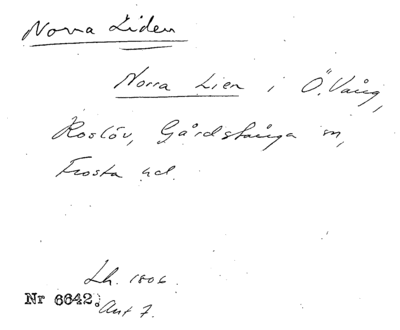 Norra Liden
Norra Lien i Ö. Vång,
Roslöv, Gårdstånga sn,
Frosta hd.
Lh. 1806
Nr 6642. Akt 7.